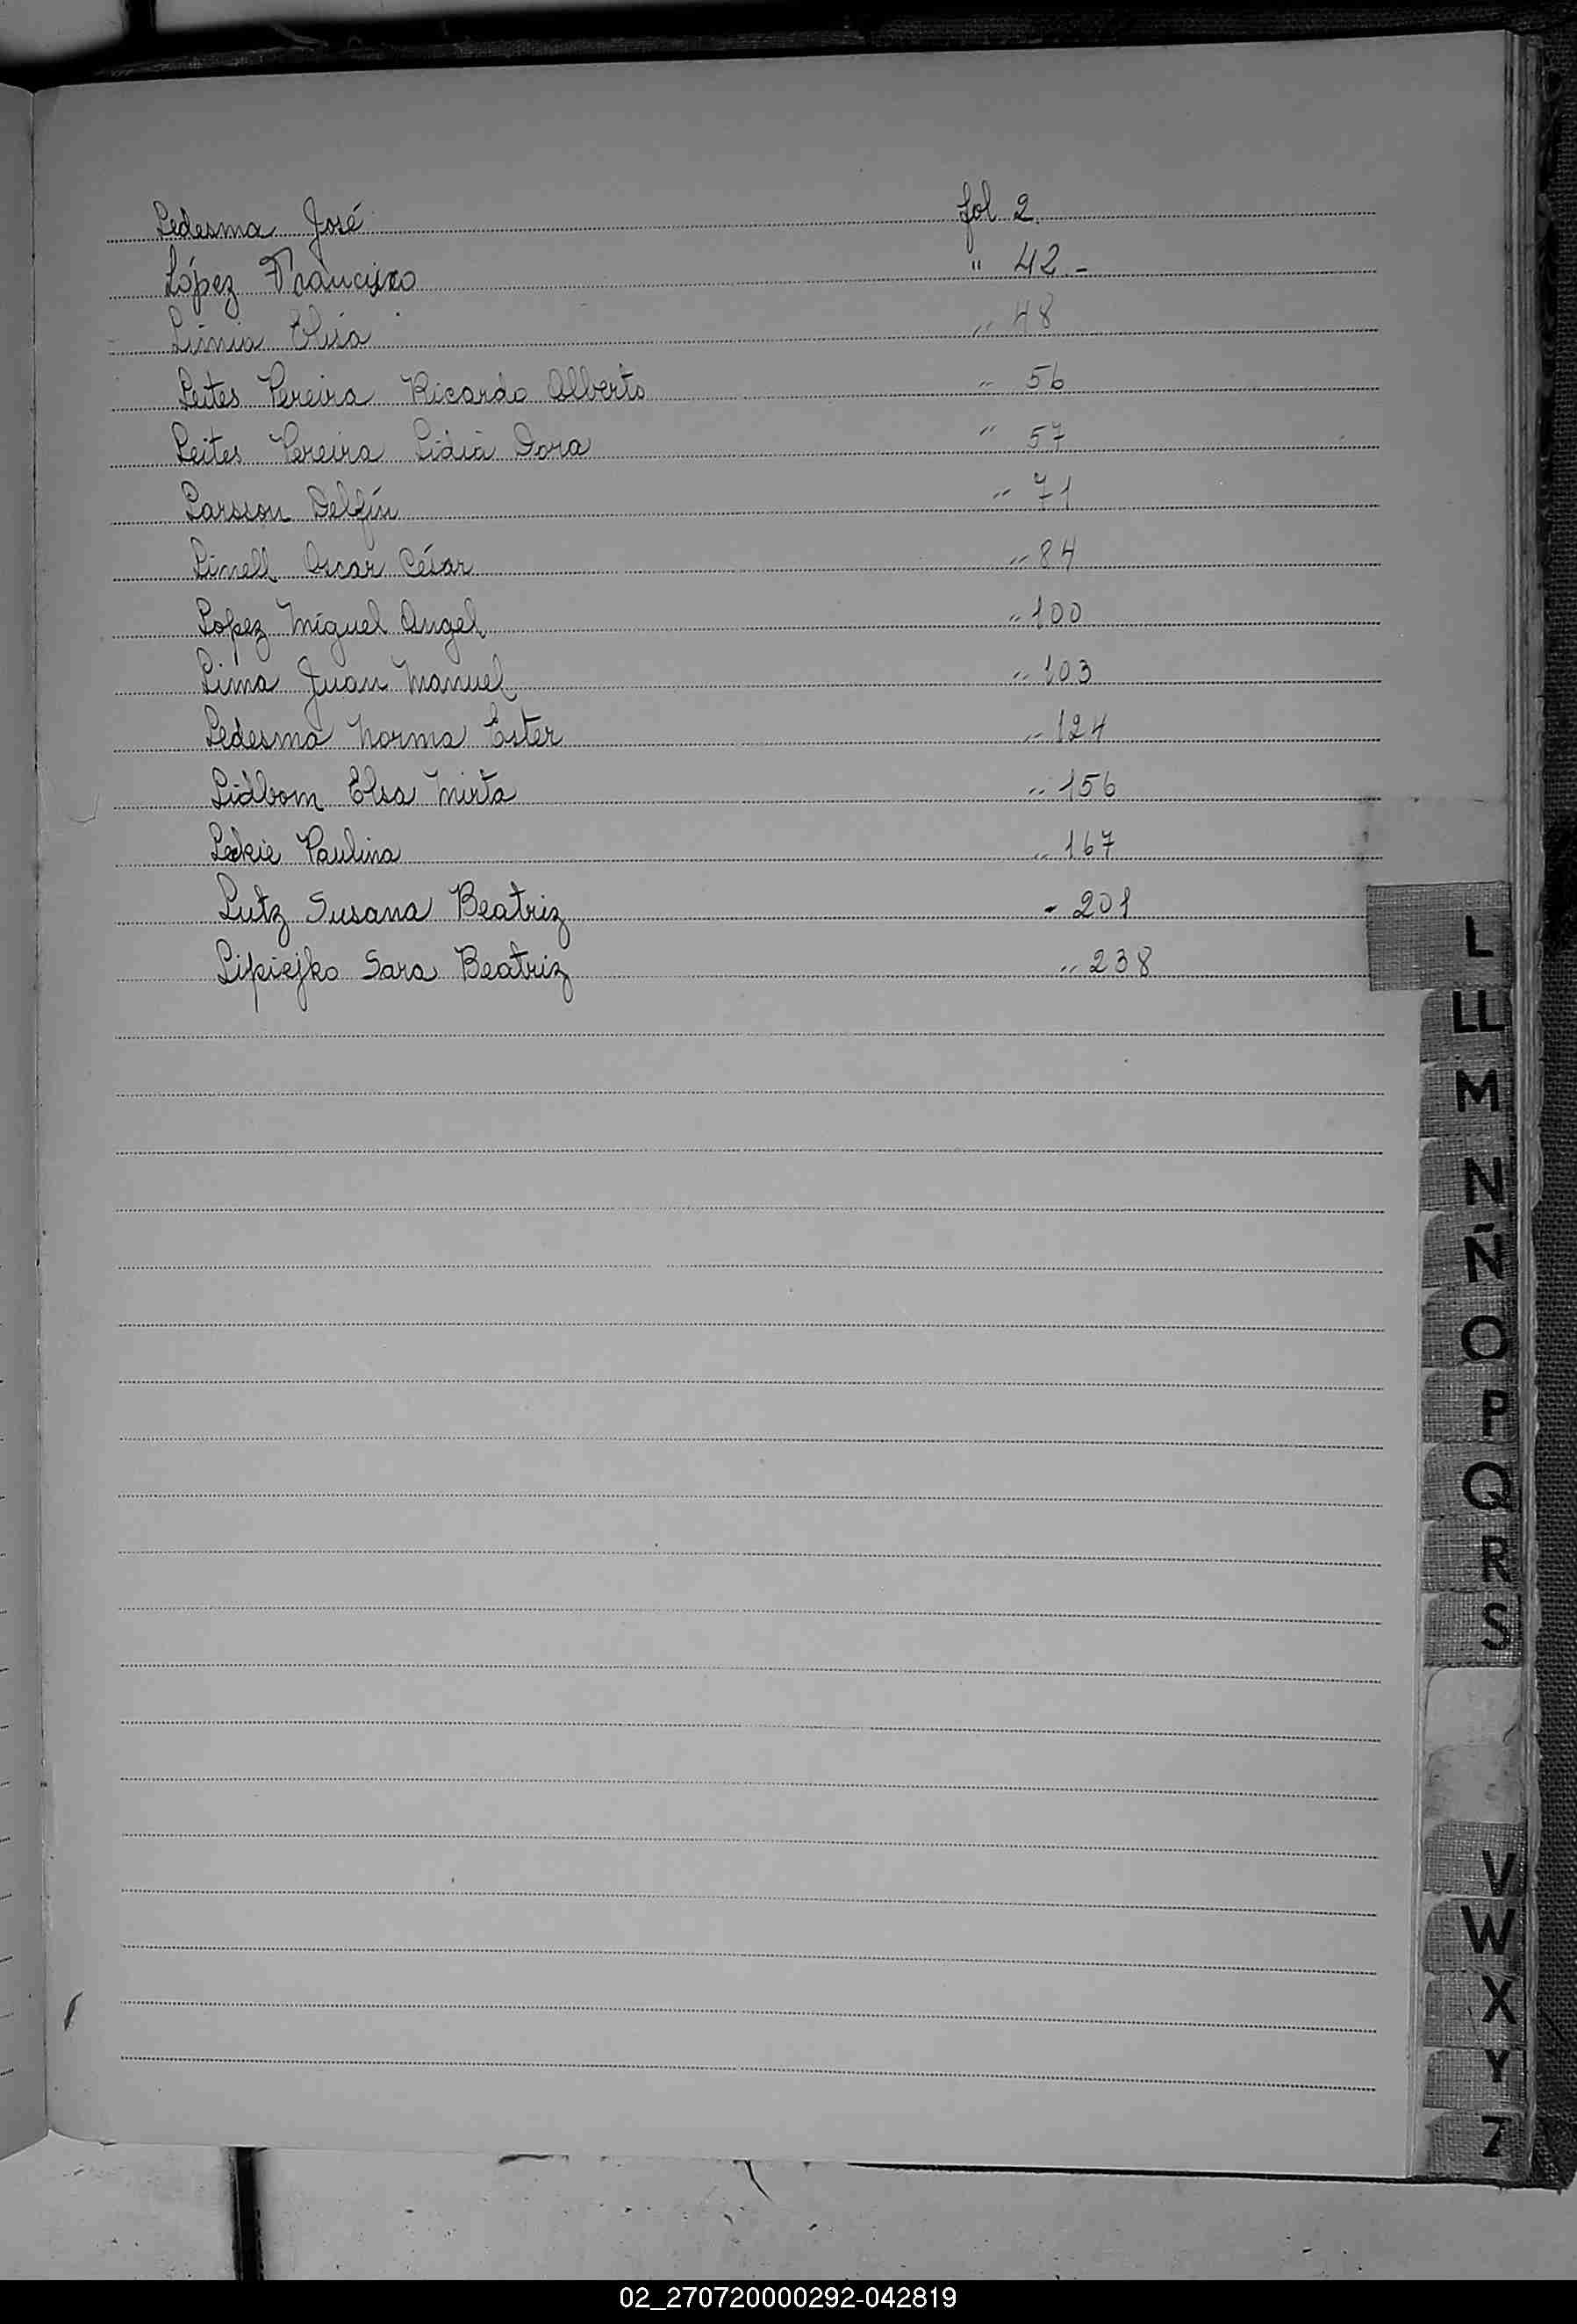 Ledesma José fol 2.
López Francisco " 42.-
Limia Elisa " 48
Leites Pereira Ricardo Alberto " 56
Leites Pereira Lidia Dora " 57
Larsson Delfín " 71
Linell Oscar César " 84
Lopez Miguel Angel " 100
Lima Juan Manuel " 103
Ledesma Norma Ester " 124
Lidbom Elsa Mirta " 156
Leckie Paulina " 167
Lutz Susana Beatriz " 201
Lipiejko Sara Beatriz " 238
L
LL
M
N
Ñ
O
P
Q
R
S
V
W
X
Y
Z
02_270720000292-042819